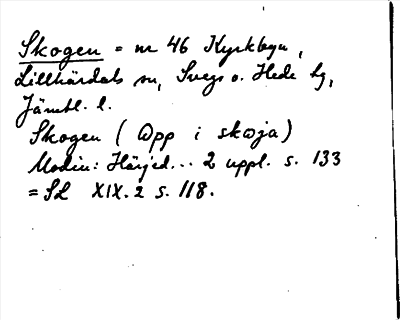 Skogen = nr 46 Kyrkbyn,
Lillhärdals sn, Svegs o. Hede tg,
Jämtl. l.
Skogen (ɷpp i skɷja)
Modin: Härjed... 2 uppl. s. 133
= SL XIX. 2 s. 118.